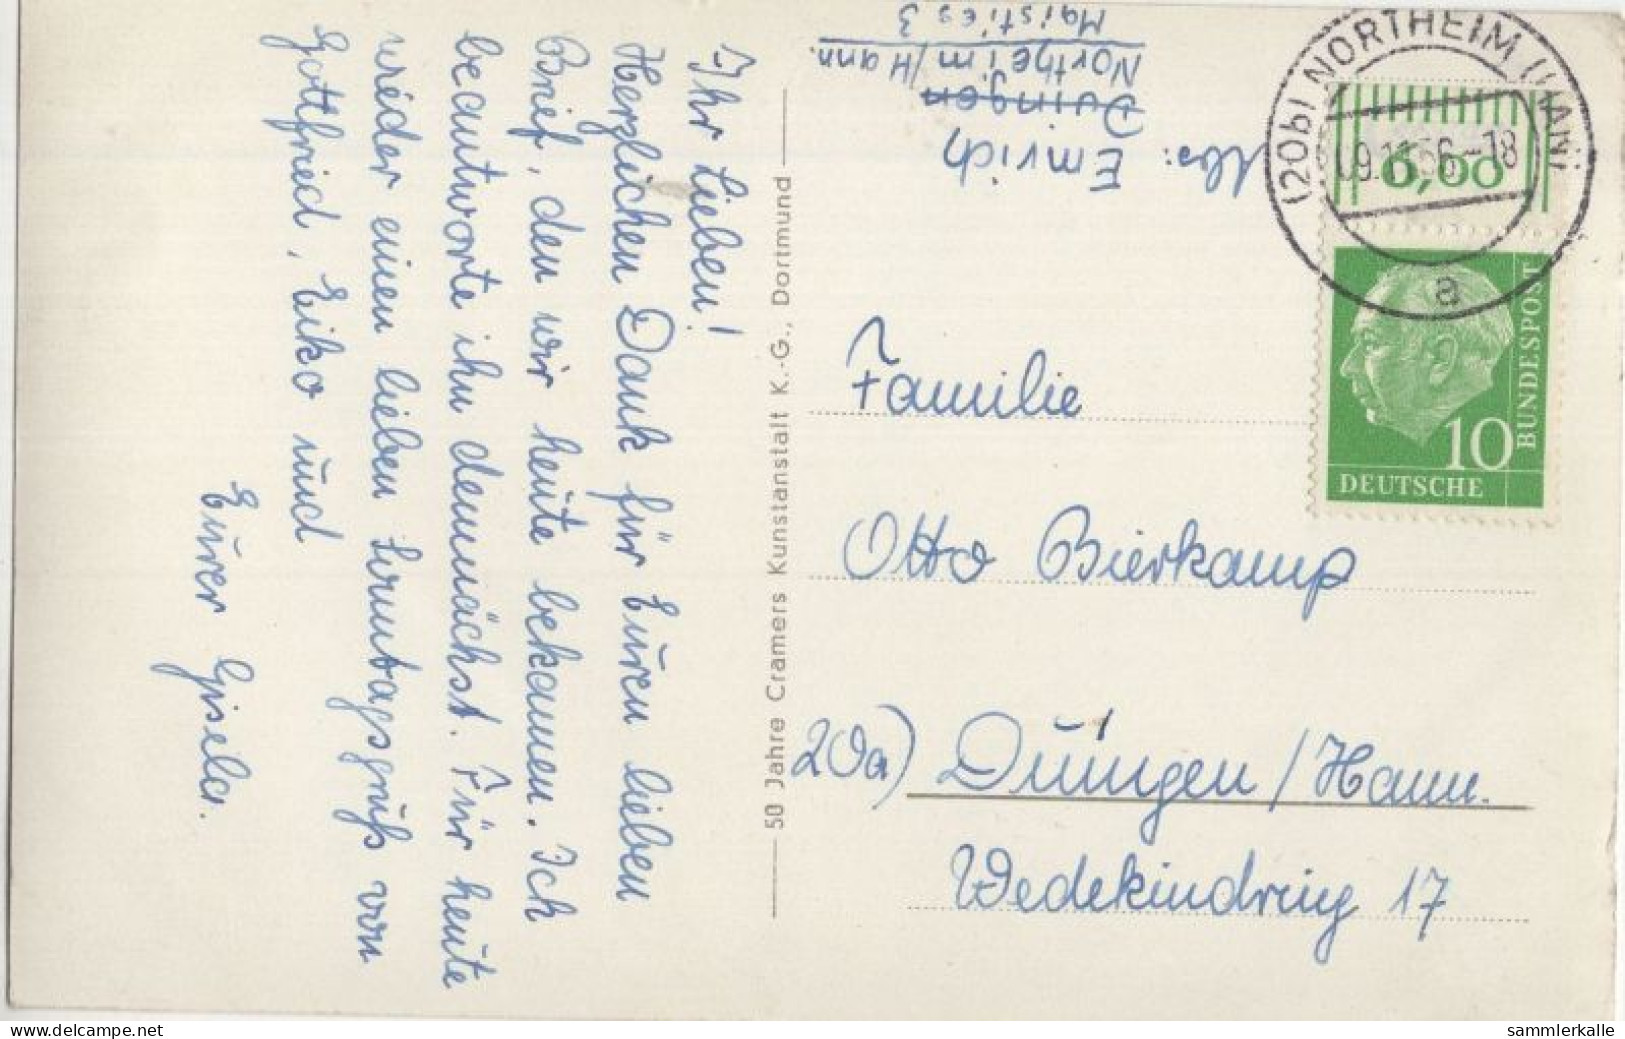 Ihr Lieben!
Herzlichen Dank für Euren lieben
Brief, den wir heute bekamen. Ich
beantworte ihn demnächst. Für heute
wieder einen lieben Sonntagsgruß von
Gottfried, Eiko und
Eurer Gisela.
50 Jahre Cramers Kunstanstalt K.-G., Dortmund
Abs: Emrich
Duingen
Northeim/Hann.
(20b) NORTHEIM (HAN)
09.11.56-18
a
0,60
10
DEUTSCHE
BUNDESPOST
Familie
Otto Bierkamp
20a) Duingen/Hann.
Wedekindring 17
www.delcampe.net
sammlerkalle